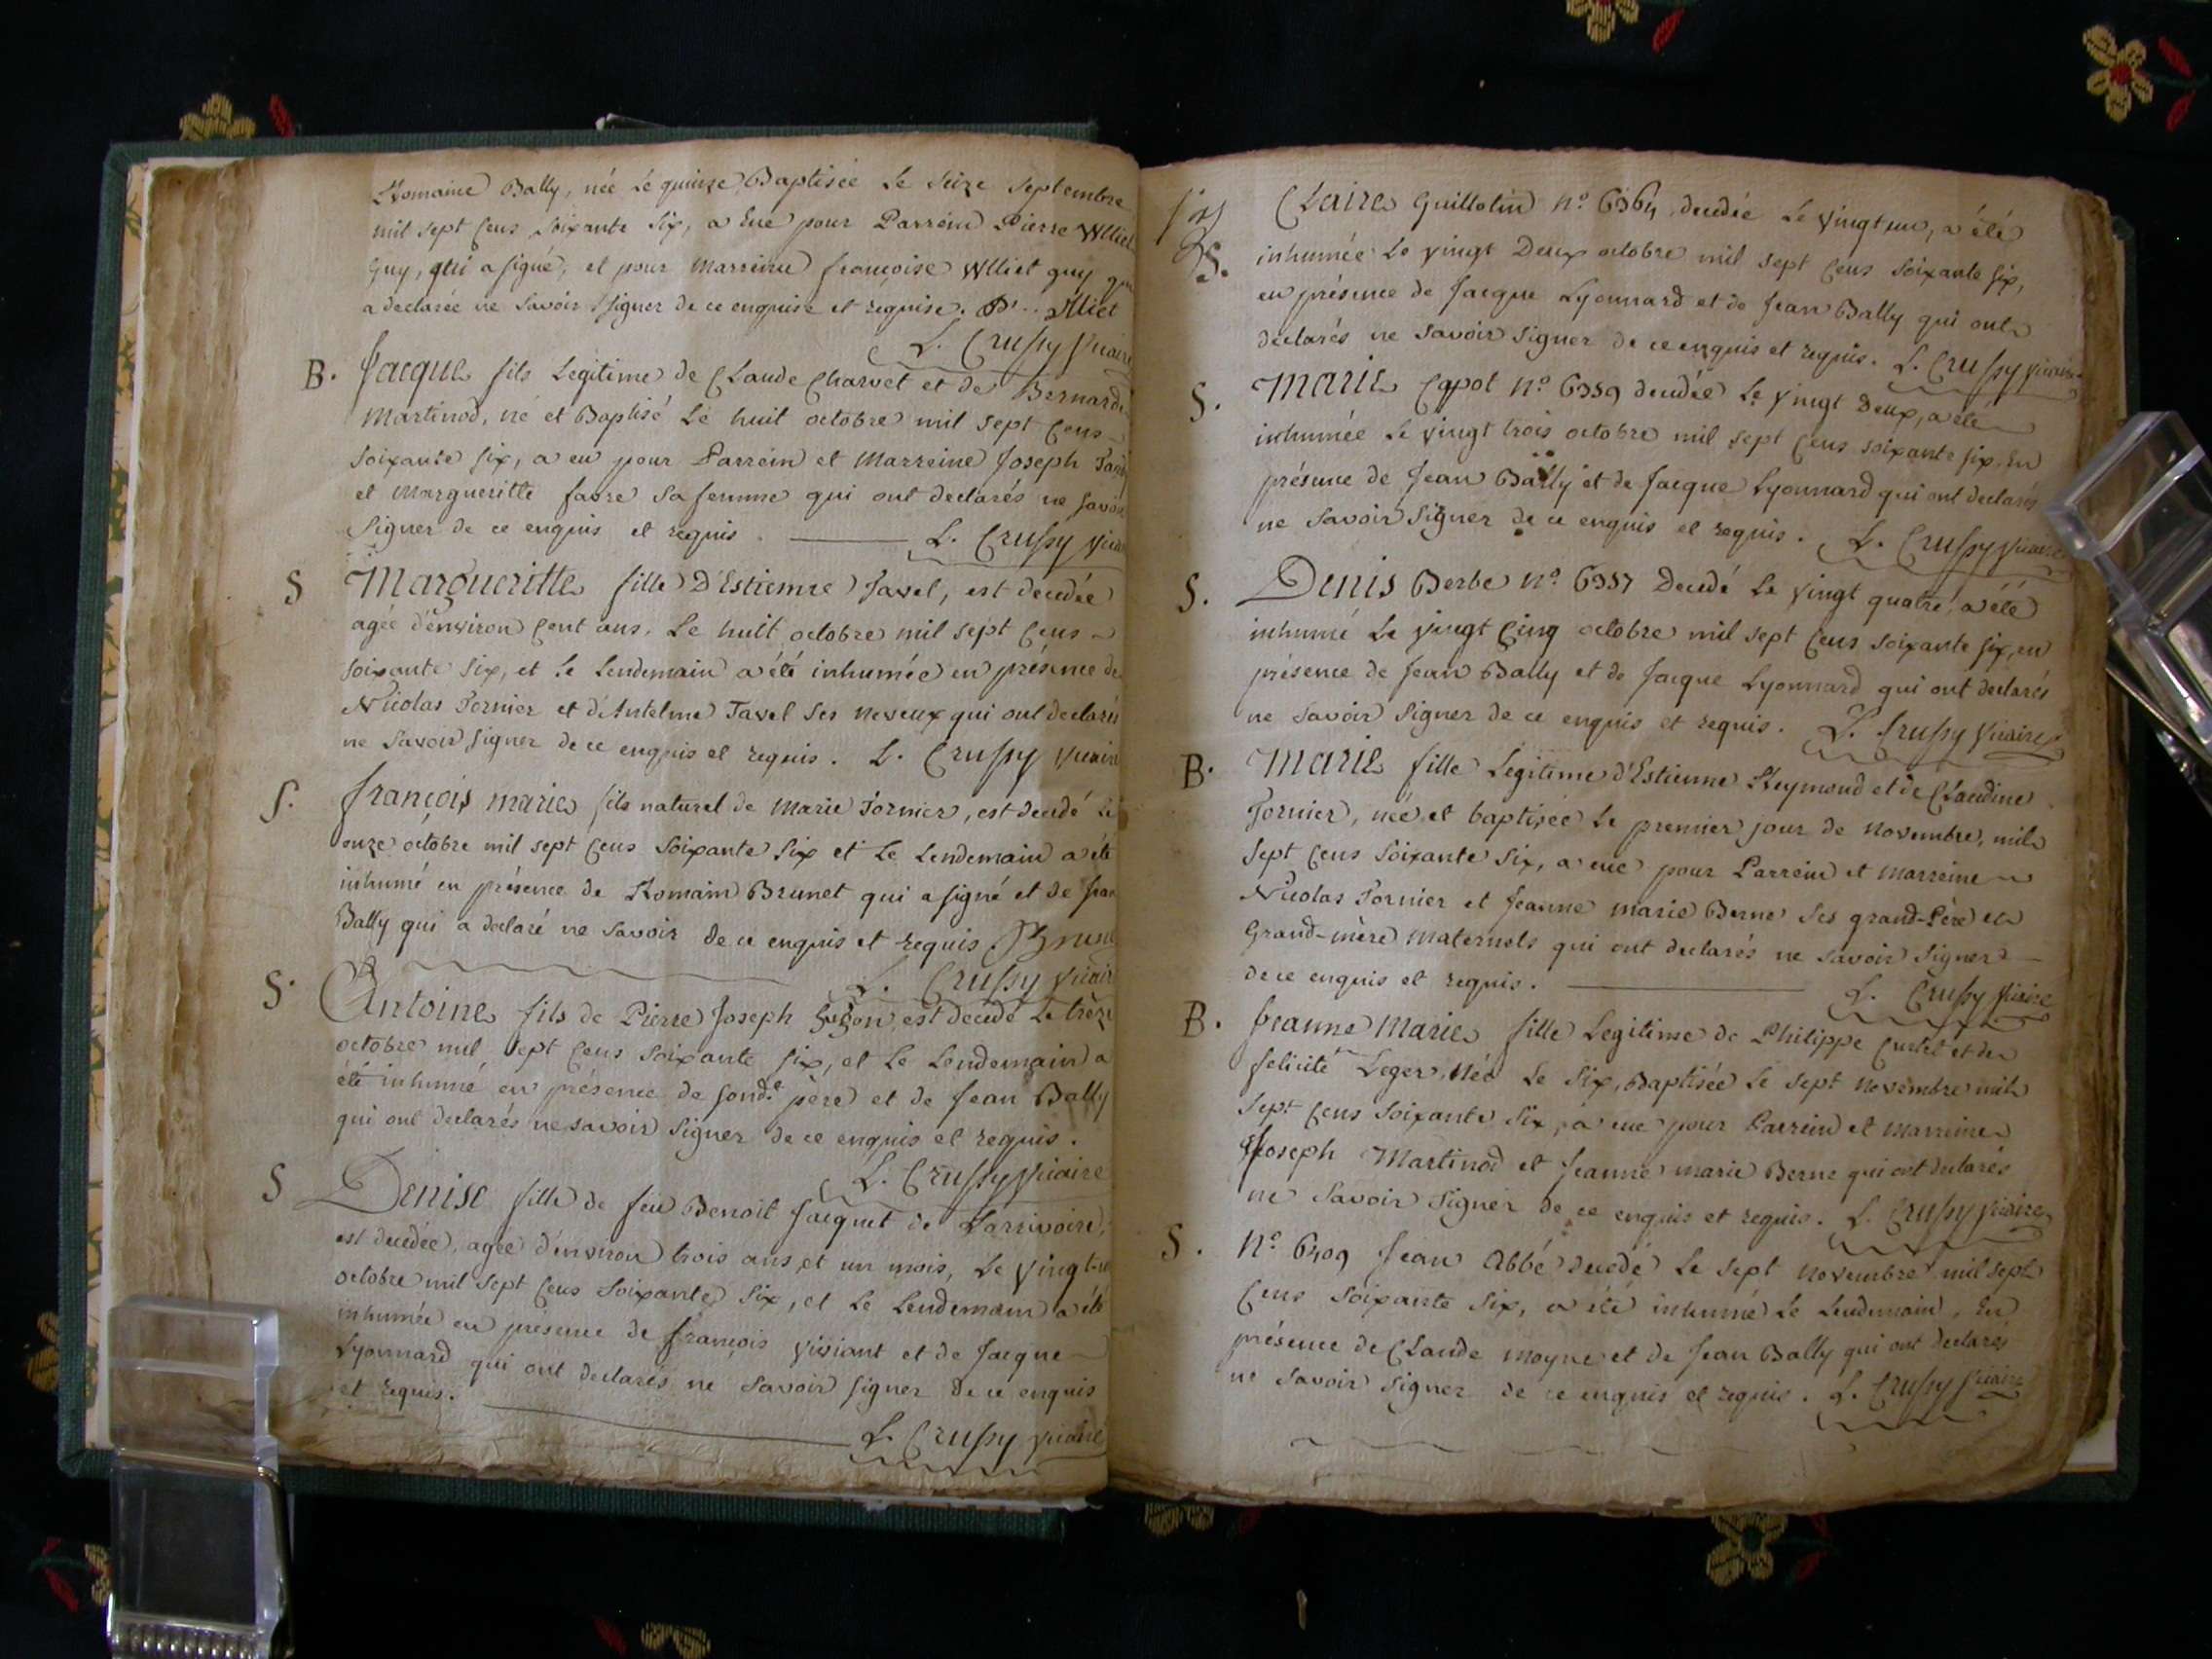 Romaine Bally, née le quinze, Baptisée le seize septembre
mil sept cens soixante six, a eue pour Parrein Pierre Williet
Guy, qui a signé, et pour Marreine françoise Williet guy qui
a declarée ne savoir signer de ce enquise et requise. P. Illiet
L. Crussy vicaire
B. Jacque fils Legitime de Claude Charvet et de Bernarde
Martinod, né et Baptisé Le huit octobre mil sept cens
soixante six, a eu pour Parrein et Marreine Joseph
et Margueritte favre sa femme qui ont declarés ne savoir
signer de ce enquis et requis. L. Crussy vicaire
S Margueritte fille D'Estienne Tavel, est decedée
agée d'environ cent ans, Le huit octobre mil sept cens
soixante six, et le lendemain a été inhumée en présence de
Nicolas Fornier et d'Antelme Tavel ses neveux qui ont declarés
ne savoir signer de ce enquis et requis. L. Crussy vicaire
S. François marie fils naturel de Marie Fornier, est decedé Le
onze octobre mil sept cens soixante six et Le Lendemain a été
inhumé en présence de Romain Brunet qui a signé et de Jean
Bally qui a declaré ne savoir de ce enquis et requis Brunet
L. Crussy vicaire
S. Antoine fils de Pierre Joseph est decedé Le trèze
octobre mil sept cens soixante six, et Le Lendemain a
été inhumé en présence de sond.t père et de Jean Bally
qui ont declarés ne savoir signer de ce enquis et requis.
L. Crussy vicaire
S Denise fille de feu Benoit Jacquet de Larrivoire,
est decedée, agée d'environ trois ans et un mois, Le vingt un
octobre mil sept cens soixante six, et Le Lendemain a été
inhumée en présence de françois viviant et de Jacque
Lyonnard qui ont declarés ne savoir signer de ce enquis
et requis.
L. Crussy vicaire
S. Claire Guillotin n.o 6364, decedée Le vingt un, a été
inhumée Le vingt Deux octobre mil sept cens soixante six,
en présence de Jacque Lyonnard et de Jean Bally qui ont
declarés ne savoir signer de ce enquis et requis. L. Crussy vicaire
S. Marie Capot n.o 6359 decedée Le vingt deux, a été
inhumée Le vingt trois octobre mil sept cens soixante six, En
présence de Jean Bally et de Jacque Lyonnard qui ont declarés
ne savoir signer de ce enquis et requis. L. Crussy vicaire
S. Denis Berbe n.o 6357 Decedé Le vingt quatre, a été
inhumé Le vingt cinq octobre mil sept cens soixante six, en
présence de Jean Bally et de Jacque Lyonnard qui ont declarés
ne savoir signer de ce enquis et requis. L. Crussy vicaire
B. Marie fille Legitime d'Estienne Reymond et de Claudine
Fornier, née et baptisée Le premier jour de novembre, mil
sept cens soixante six, a eue pour Parrein et Marreine
Nicolas Fornier et Jeanne marie Berne ses grand-Père et
Grand-mère Maternels qui ont declarés ne savoir signer
de ce enquis et requis. L. Crussy vicaire
B. Jeanne Marie fille Legitime de Philippe Curtet et de
felicité Leger, Née Le six, Baptisée Le sept novembre mil
sept cens soixante six, a eue pour Parrein et Marreine
Joseph Martinod et Jeanne marie Berne qui ont declarés
ne savoir signer de ce enquis et requis. L. Crussy vicaire
S. N.o 6409 Jean Abbé decedé Le sept novembre mil sept
cens soixante six, a été inhumé Le Lendemain, En
présence de Claude moyne et de Jean Bally qui ont declarés
ne savoir signer de ce enquis et requis. L. Crussy vicaire